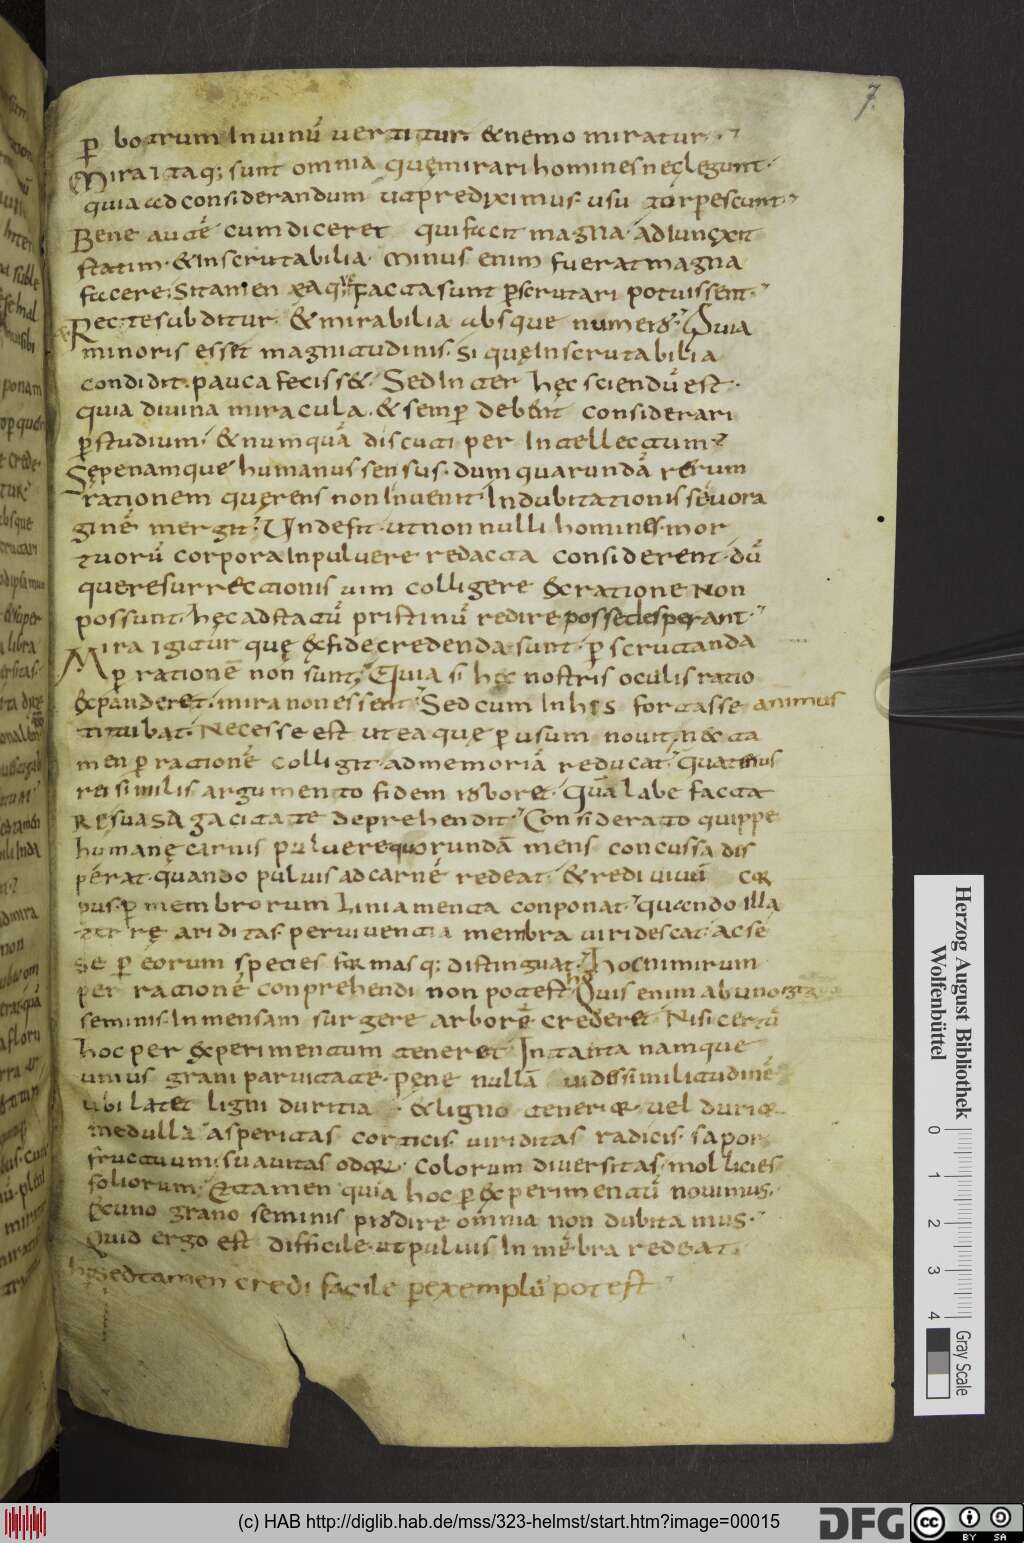 7.
ꝑ botrum In vinū vertitur. & nemo miratur.
Mira itaq; sunt omnia quę mirari homines neclegunt.
quia ad considerandum ut prediximus. usu torpescunt.
Bene autē cum diceret qui facit magna. adIunxit
statim. & Inscrutabilia. Minus enim fuerat magna
facere. Si tamen ea quę facta sunt ꝑscrutari potuissent.
Recte subditur. & mirabilia absque numero. Quia
minoris esset magnitudinis. si quę Inscrutabilia
condidit. pauca feciss&. Sed Inter hęc sciendū est.
quia divina miracula. & semꝑ debent considerari
ꝑ studium. & numquā discuti per Intellectum.
Sępe namque humanus sensus. dum quarundā rerum
rationem quęrens non Invenit. In dubitationis se vora
ginē mergit. Unde fit. ut non nulli homines. mor
tuorū corpora In pulvere redacta considerent. dū
que resurrectionis vim colligere ex ratione non
possunt. hęc ad statū pristinū redire posse desperant.
Mira igitur quę ex fide credenda sunt. ꝑscrutanda
ꝑ rationē non sunt. Quia si hęc nostris oculis ratio
expanderet. mira non essent. Sed cum In his fortasse animus
titubat. Necesse est ut ea quę ꝑ usum novit. nec ta
men ꝑ rationē colligit. ad memoriā reducat. Quatenus
rei similis argumento fidem roboret. quā labefacta
re sua sagacitate deprehendit. Considerato quippe
humanę carnis pulvere quorundā mens concussa dis
perat. quando pulvis ad carnē redeat. & redivivū cor
pus. ꝑ membrorum Liniamenta conponat. quando illa
terrę ariditas per viventia membra viridescat. ac se
se ꝑ eorum species formasq; distinguat. Hoc nimirum
per rationē conprehendi non potest. Quis enim ab uno
seminis. In mensam surgere arborē crederet. Nisi certū
hoc per experimentum teneret. In tanta namque
unius grani parvitate. pęne nullā
ubi latet ligni duritia. & ligno tenerior. vel durior
medulla asperitas corticis. viriditas radicis. sapor
fructuum. suavitas odor. colorum diversitas. mollicies
foliorum. Et tamen quia hoc ꝑ experimentū novimus.
Ex uno grano seminis prodire omnia non dubitamus.
Quid ergo est difficile. ut pulvis In mēbra redeat.
sed tamen credi facile ꝑ exemplū potest
Herzog August Bibliothek
Wolfenbüttel
0 1 2 3 4
Gray Scale
(c) HAB http://diglib.hab.de/mss/323-helmst/start.htm?image=00015
DFG
cc BY SA